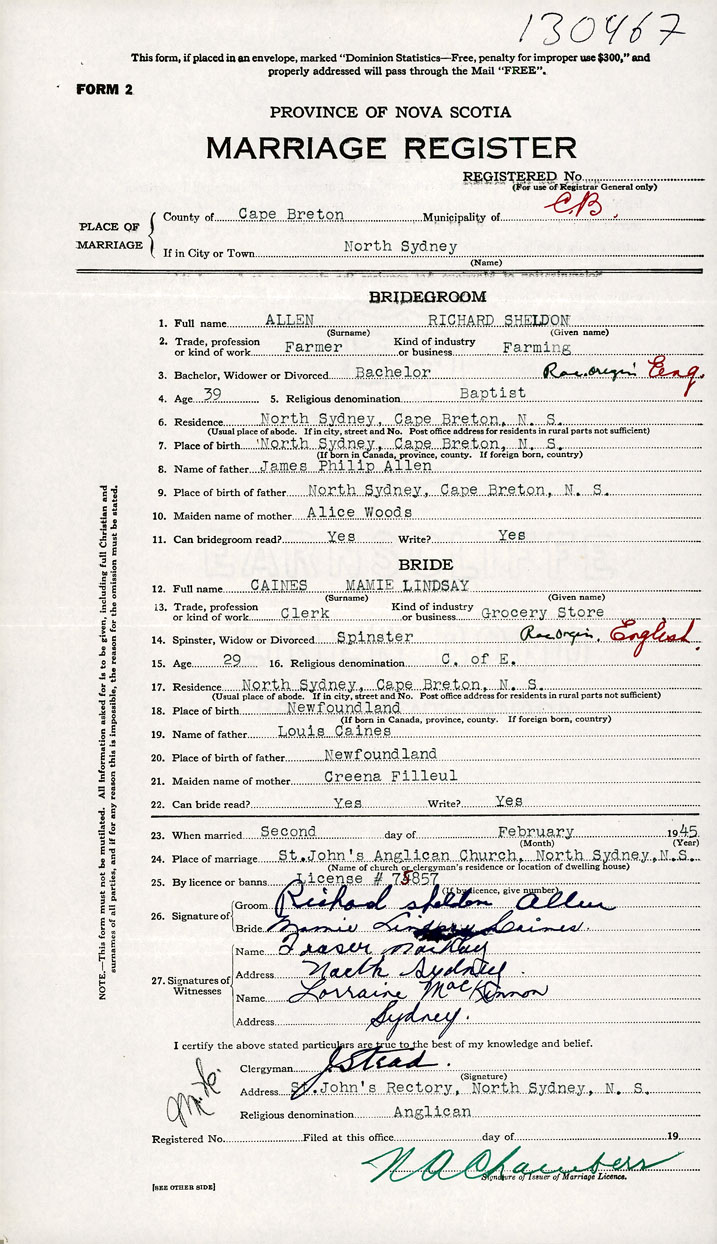 130467
This form, if placed in an envelope, marked "Dominion Statistics—Free, penalty for improper use $300," and
properly addressed will pass through the Mail "FREE".
FORM 2
PROVINCE OF NOVA SCOTIA
MARRIAGE REGISTER
REGISTERED No.
(For use of Registrar General only)
C.B.
PLACE OF MARRIAGE
County of Cape Breton Municipality of
If in City or Town North Sydney
(Name)
BRIDEGROOM
1. Full name ALLEN RICHARD SHELDON
(Surname) (Given name)
2. Trade, profession or kind of work Farmer Kind of industry or business Farming
3. Bachelor, Widower or Divorced Bachelor Rac. origin Eng.
4. Age 39 5. Religious denomination Baptist
6. Residence North Sydney, Cape Breton, N. S.
(Usual place of abode. If in city, street and No. Post office address for residents in rural parts not sufficient)
7. Place of birth North Sydney, Cape Breton, N. S.
(If born in Canada, province, county. If foreign born, country)
8. Name of father James Philip Allen
9. Place of birth of father North Sydney, Cape Breton, N. S.
10. Maiden name of mother Alice Woods
11. Can bridegroom read? Yes Write? Yes
BRIDE
12. Full name CAINES MAMIE LINDSAY
(Surname) (Given name)
13. Trade, profession or kind of work Clerk Kind of industry or business Grocery Store
14. Spinster, Widow or Divorced Spinster Rac. Origin. English.
15. Age 29 16. Religious denomination C. of E.
17. Residence North Sydney, Cape Breton, N. S.
(Usual place of abode. If in city, street and No. Post office address for residents in rural parts not sufficient)
18. Place of birth Newfoundland
(If born in Canada, province, county. If foreign born, country)
19. Name of father Louis Caines
20. Place of birth of father Newfoundland
21. Maiden name of mother Creena Filleul
22. Can bride read? Yes Write? Yes
23. When married Second day of February 1945
(Month) (Year)
24. Place of marriage St.John's Anglican Church, North Sydney,N.S.
(Name of church or clergyman's residence or location of dwelling house)
25. By licence or banns License #
(If by licence, give number)
26. Signature of
Groom Richard Sheldon Allen
Bride Mamie Lindsay Caines.
27. Signatures of Witnesses
Name Fraser MacKay
Address North Sydney.
Name Lorraine MacKinnon
Address Sydney.
I certify the above stated particulars are true to the best of my knowledge and belief.
Clergyman J. Stead.
(Signature)
Address St.John's Rectory, North Sydney, N. S.
Religious denomination Anglican
Registered No. Filed at this office day of 19
N A Chambers
Signature of Issuer of Marriage Licence.
[SEE OTHER SIDE]
NOTE.—This form must not be mutilated. All information asked for is to be given, including full Christian and
surnames of all parties, and if for any reason this is impossible, the reason for the omission must be stated.